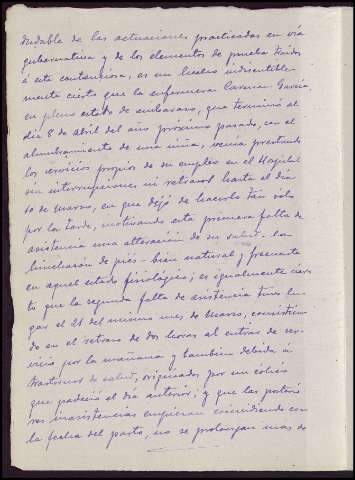 dudable de las actuaciones practicadas en vía
gubernativa y de los elementos de prueba traidos
á este contencioso, es un hecho indiscutible-
mente cierto que la enfermera Carmen García,
en pleno estado de embarazo, que terminó al
dia 8 de abril del año próximo pasado, con el
alumbramiento de una niña, venía prestando
los servicios propios de su empleo en el Hospital
sin interrupciones ni retrasos hasta el dia
10 de marzo, en que dejó de hacerlo tan sólo
por la tarde, motivando esta primera falta de
asistencia una alteración de su salud - la
hinchazón de piés - bien natural y frecuente
en aquel estado fisiológico; es igualmente cier-
to que la segunda falta de asistencia tuvo lu-
gar el 21 del mismo mes de Marzo, consistien-
do en el retraso de dos horas al entrar de ser-
vicio por la mañana y tambien debida á
trastornos de salud, originados por un cólico
que padeció el dia anterior; y que las posterio-
res inasistencias empiezan coincidiendo con
la fecha del parto, no se prolongan mas de